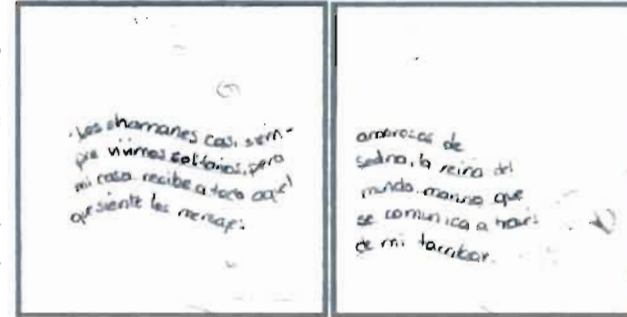 ·Los shamanes casi siem-
pre vivimos solitarios, pero
mi casa recibe a todo aquel
que siente los mensajes
amorosos de
Sedna, la reina del
mundo marino que
se comunica a través
de mi tambor.